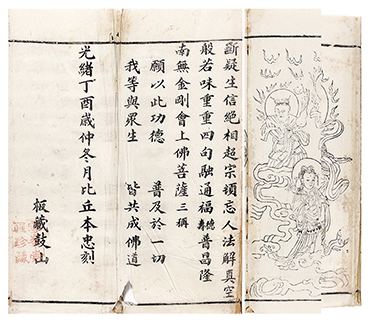 斷疑生信絕相超宗頓忘人法解真空
般若味重重四句融通福德壽普昌隆
南無金剛會上佛菩薩三稱
願以此功德 普及於一切
我等與眾生 皆共成佛道
光緒丁酉歲仲冬月比丘本忠刻
板藏鼓山